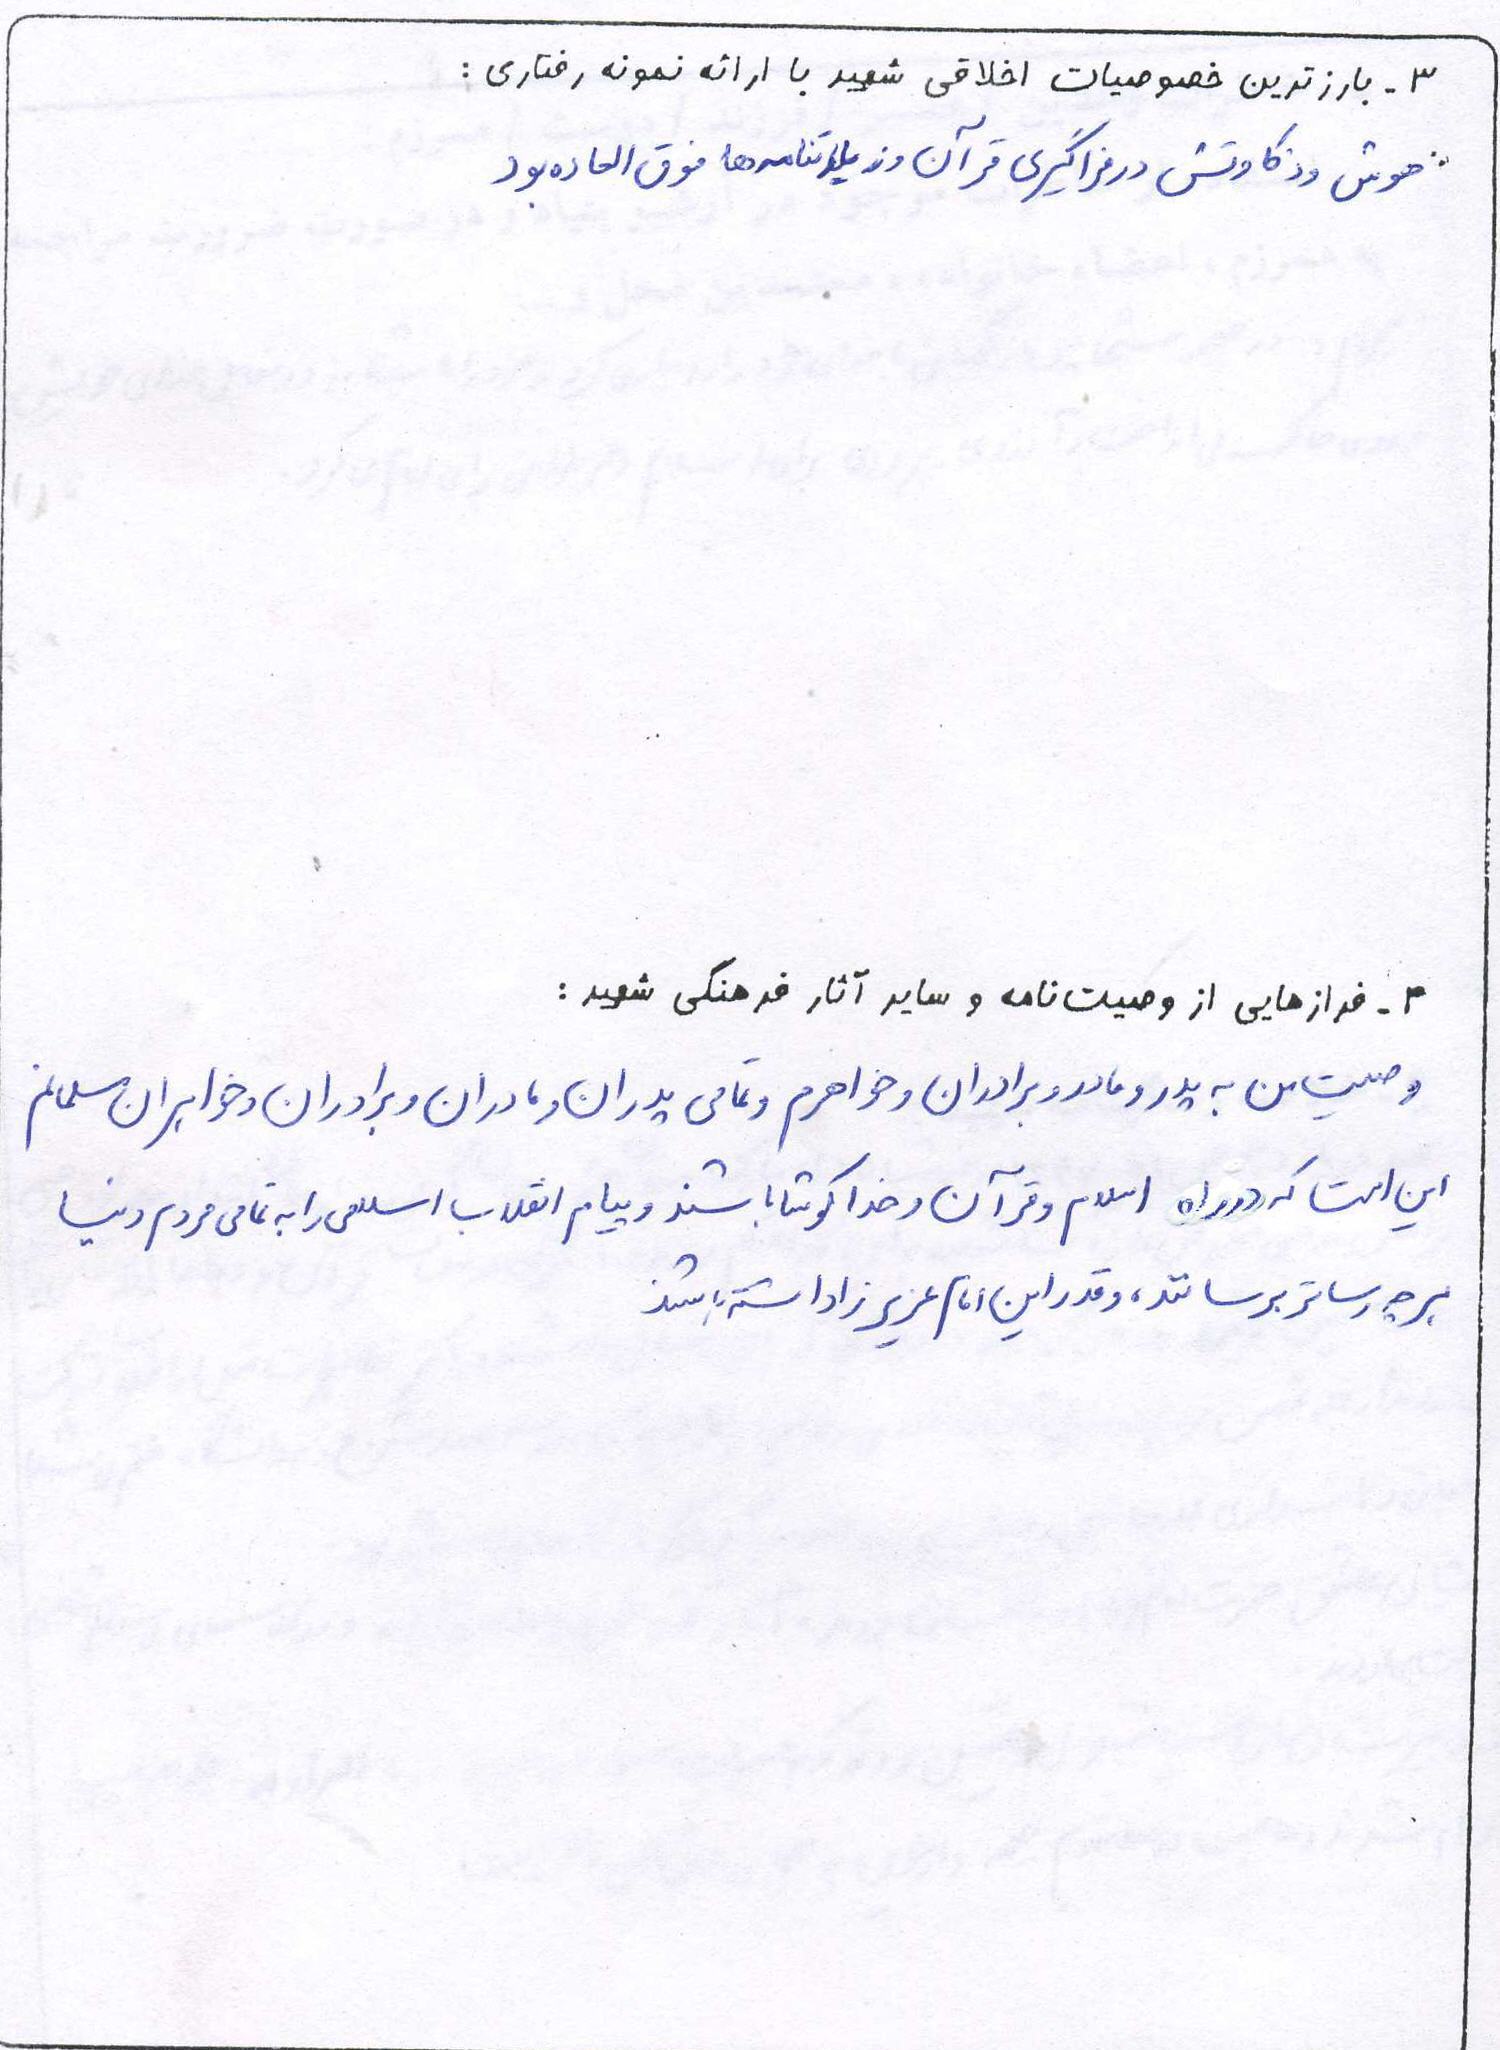 ۳ـ بارزترین خصوصیات اخلاقی شهید با ارائه نمونه رفتاری :
هوش و ذکاوتش در فراگیری قرآن و زیارتنامه ها فوق العاده بود
۴ـ فرازهایی از وصیت‌نامه و سایر آثار فرهنگی شهید :
وصیت من به پدر و مادر و برادران و خواهرم و تمامی پدران و مادران و برادران و خواهران مسلمانم
این است که در راه اسلام و قرآن و خدا کوشا باشند و پیام انقلاب اسلامی را به تمامی مردم دنیا
هر چه رساتر برسانند، و قدر این امام عزیز را داشته باشند